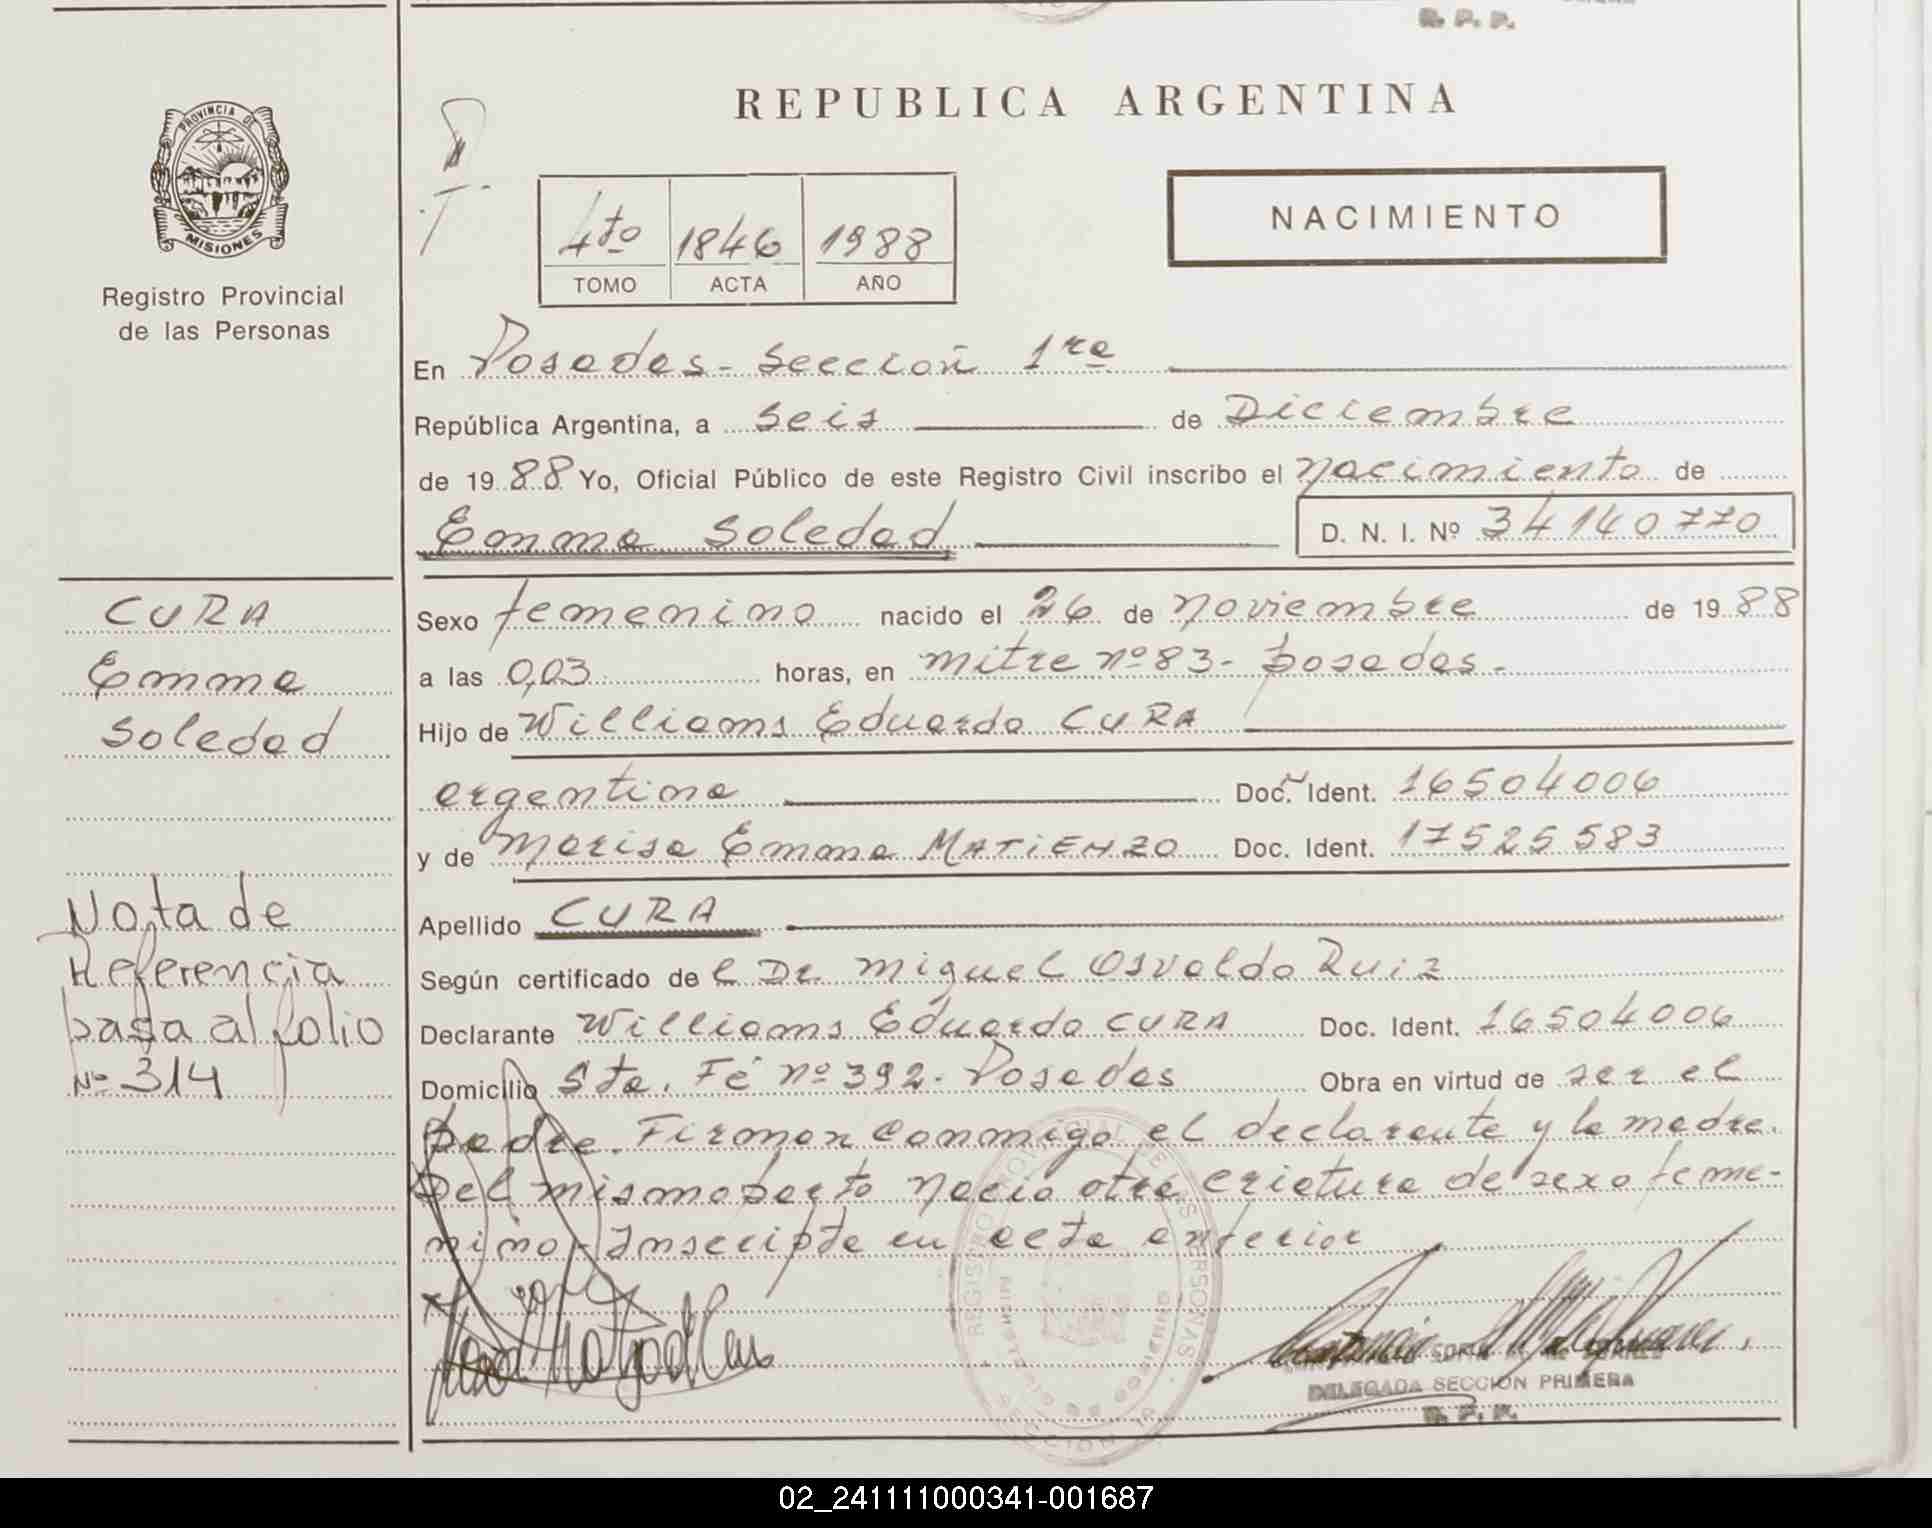 R. P. P.
PROVINCIA DE
MISIONES
Registro Provincial
de las Personas
REPUBLICA ARGENTINA
4to 1846 1988
TOMO ACTA AÑO
NACIMIENTO
En Posadas - Sección 1ra
República Argentina, a Seis de Diciembre
de 1988 Yo, Oficial Público de este Registro Civil inscribo el nacimiento de
Emma Soledad D. N. I. Nº 34140770
CURA
Emma
Soledad
Sexo femenino nacido el 26 de noviembre de 1988
a las 0,03 horas, en mitre nº 83 - posadas -
Hijo de Williams Eduardo CURA
argentina Doc. Ident. 16504006
y de Marisa Emma MATIENZO Doc. Ident. 17525583
Apellido CURA
Según certificado de l Dr Miguel Osvaldo Ruiz
Declarante Williams Eduardo CURA Doc. Ident. 16504006
Domicilio Sta. Fé nº 392 - Posadas Obra en virtud de ser el
padre. Firman conmigo el declarante y la madre.
Del mismo parto nacio otra criatura de sexo feme-
nino - Inscripta en acta anterior
Nota de
Referencia
pasa al folio
Nº 314
REGISTRO PROVINCIAL DE LAS PERSONAS
SECCION 1a
DELEGADA SECCIÓN PRIMERA
R. P. P.
02_241111000341-001687